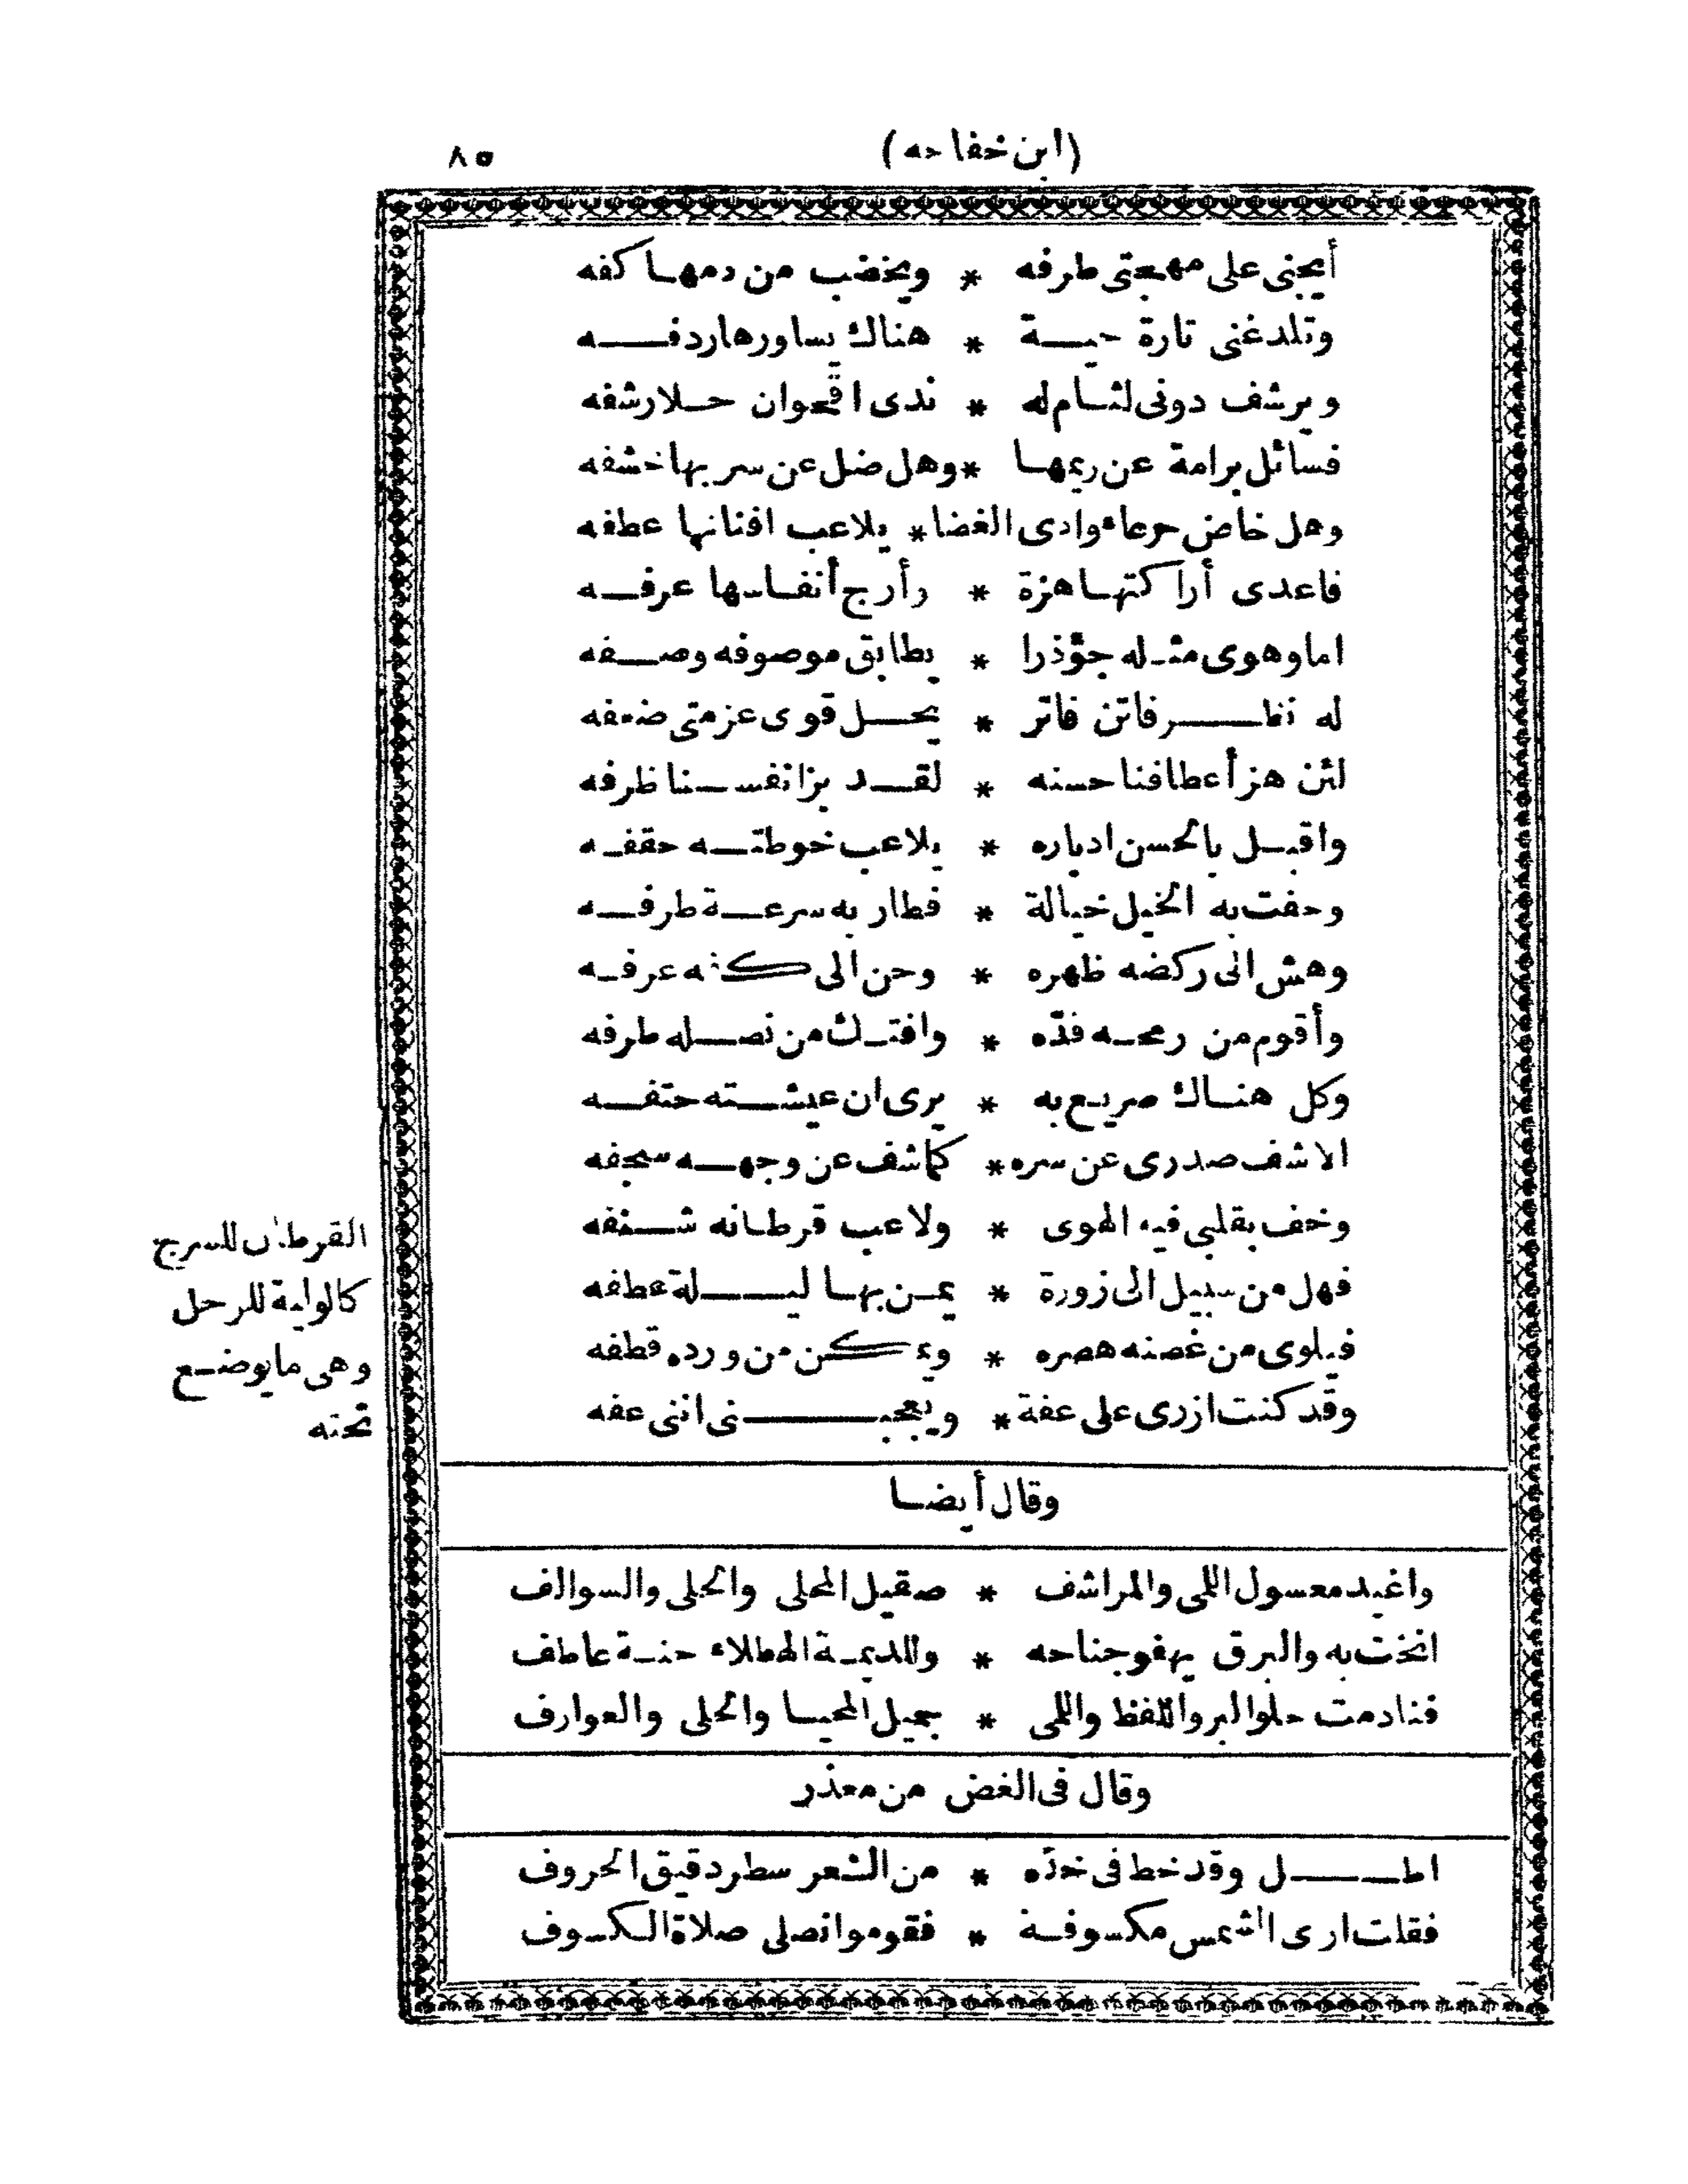 (ابن خفاجه) ٨٥
أيجنى على مهجتى طرفه * ويخضب من دمها كفه
وتلدغنى تارة حية * هناك يساورها ردفه
ويرشف دونى لثام له * ندى اقحوان حلا رشفه
فسائل برامة عن ريمها * وهل ضل عن سر بها خشفه
وهل خاض جرعاء وادى الغضا * يلاعب افنانها عطفه
فاعدى أراكتها هزة * وأرج أنفاسها عرفه
اما وهوى مثله جؤذرا * يطابق موصوفه وصفه
له نظر فاتن فاتر * يحل قوى عزمتى ضعفه
لئن هز أعطافنا حسنه * لقد بز انفسنا ظرفه
واقبل بالحسن ادباره * يلاعب خوطته حقفه
وحفت به الخيل خيالة * فطار به سرعة طرفه
وهش الى ركضه ظهره * وحن الى كفه عرفه
وأقوم من رمحه قدّه * وافتك من نصله طرفه
وكل هناك صريع به * يرى ان عيشته حتفه
الا شف صدرى عن سره * كما شف عن وجهه سجفه
وخف بقلبى فيه الهوى * ولاعب قرطانه شنفه
فهل من سبيل الى زورة * يمن بها ليلة عطفه
فيلوى من غصنه هصره * ويمكن من ورده قطفه
وقد كنت ازرى على عفة * ويعجبنى اننى عفه
القرطان للسرج
كالولية للرحل
وهى ما يوضع
تحته
وقال أيضا
واغيد معسول اللمى والمراشف * صقيل المحلى والحلى والسوالف
انخت به والبرق يهفو جناحه * وللديمة الهطلاء حنة عاطف
فنادمت حلو البر واللفظ واللمى * جميل المحيا والحلى والعوارف
وقال فى الغض من معذر
اطل وقد خط فى خدّه * من الشعر سطر دقيق الحروف
فقلت ارى الشمس مكسوفة * فقوموا نصلى صلاة الكسوف